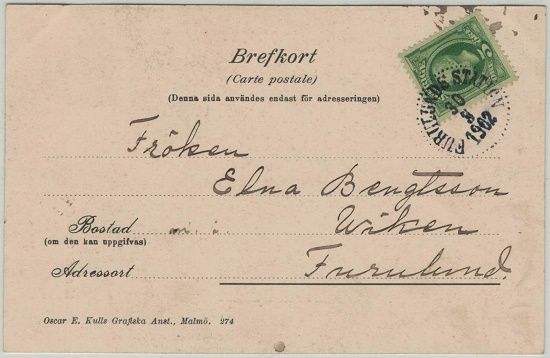 Brefkort
(Carte postale)
(Denna sida användes endast för adresseringen)
FURULUNDS STATION
10
5
1902
Fröken
Elna Bengtsson
Bostad Wiken
(om den kan uppgifvas)
Adressort Furulund.
Oscar E. Kulls Grafiska Anst., Malmö. 274